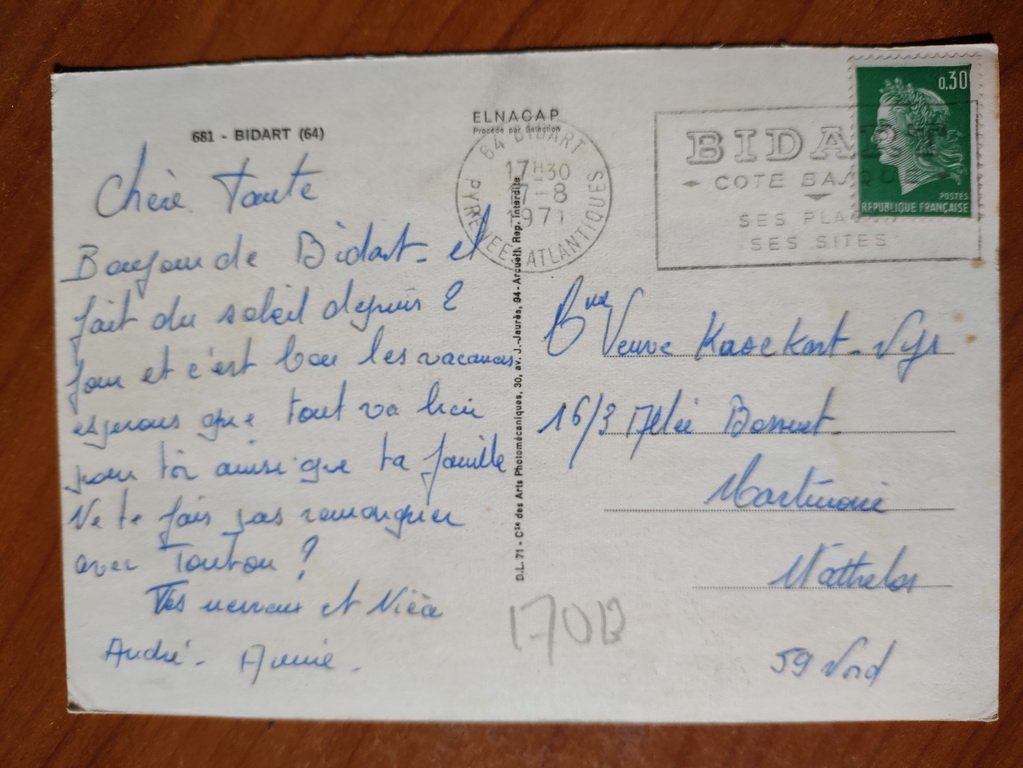 681 - BIDART (64)
ELNACAP
Procédé par Sélection
Chère Tante
Bonjour de Bidart - et
fait du soleil depuis 2
jour et c'est bon les vacances
esperons que tout va bien
pour toi ainsi que ta famille
Ne te fais pas remarquer
avec Tonton ?
Tes neveux et Nièce
André - Annie.
D.L. 71 - Cie des Arts Photomécaniques, 30, av. J.-Jaurès, 94 - Arcueil. Rep. Interdite
64 BIDART
17H30
7-8
1971
PYRENEES ATLANTIQUES
BIDART
COTE BASQUE
SES PLAGES
SES SITES
0,30
POSTES
REPUBLIQUE FRANÇAISE
Veuve
16/3 Allée Bossuet
Martinoire
Wattrelos
59 Nord